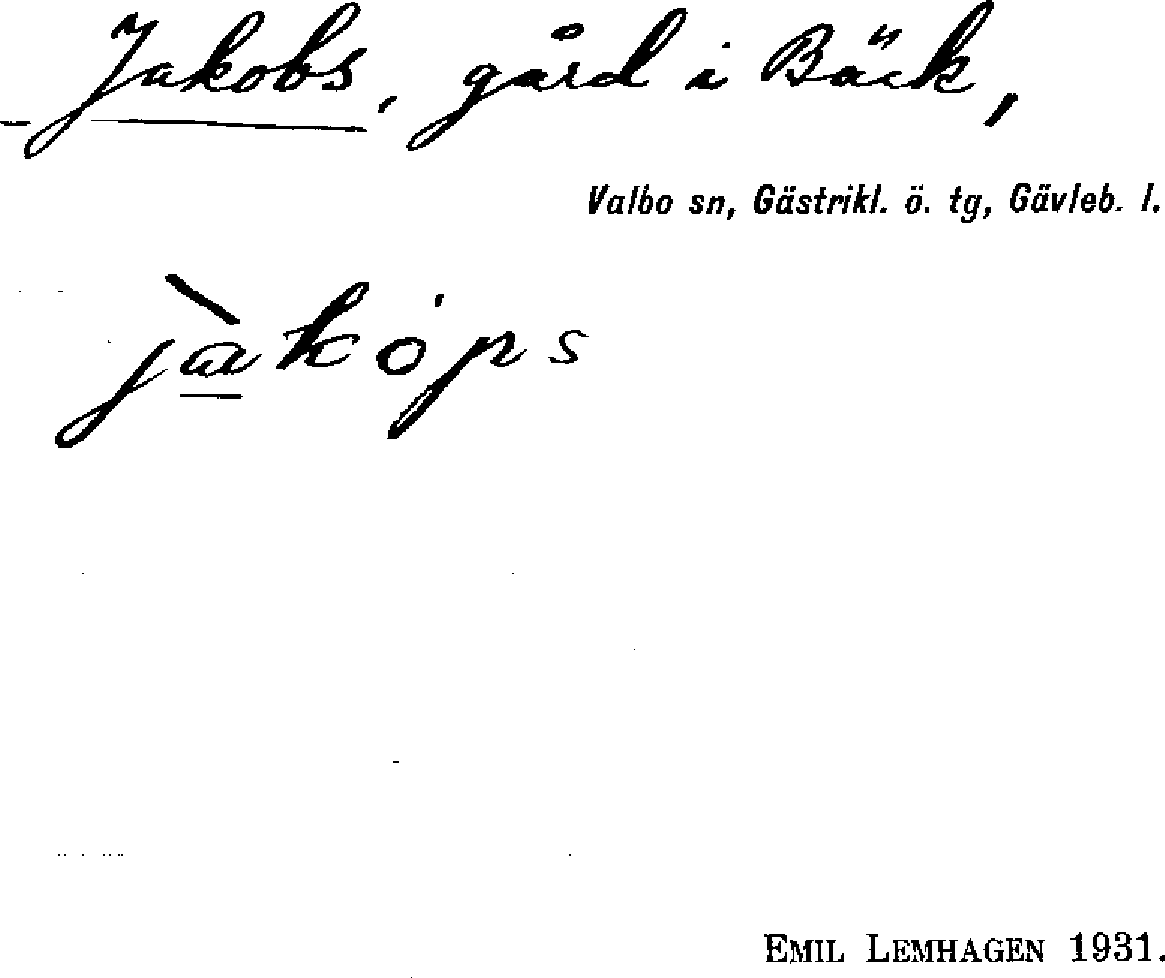 Jakobs, gård i Bäck,
Valbo sn, Gästrikl. ö. tg, Gävleb. l.
jàkóps
EMIL LEMHAGEN 1931.